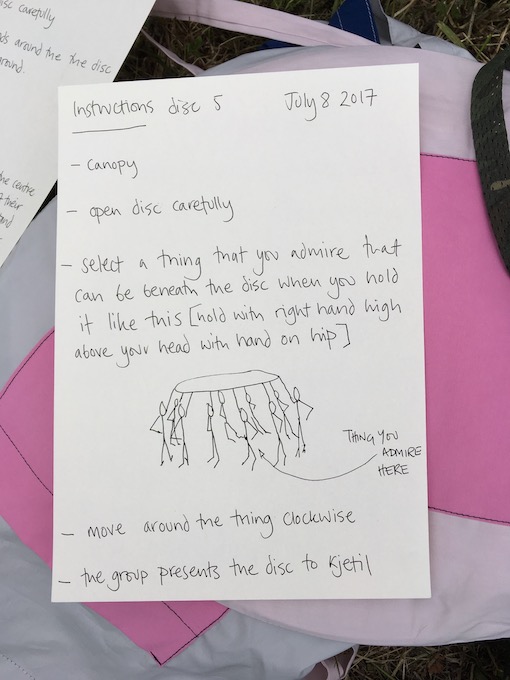 disc carefully
around the the disc
round.
the centre
their
Instructions disc 5 July 8 2017
- canopy
- open disc carefully
- select a thing that you admire that
can be beneath the disc when you hold
it like this [hold with right hand high
above your head with hand on hip]
THING YOU
ADMIRE
HERE
- move around the thing clockwise
- the group presents the disc to Kjetil